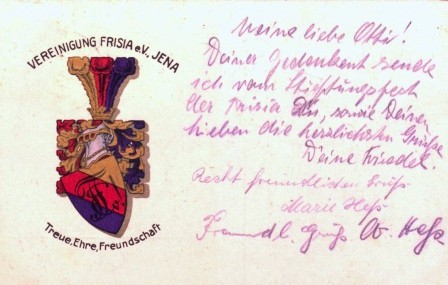 VEREINIGUNG FRISIA e.V., JENA
Treue, Ehre, Freundschaft
Meine liebe Otti!
Deiner gedenkend sende
ich vom Stiftungsfest
der Frisia Dir, sowie Deinen
Lieben die herzlichsten Grüße
Deine Friedel.
Recht freundlichen Gruß
Marie Heß
Freundl. Gruß Heß